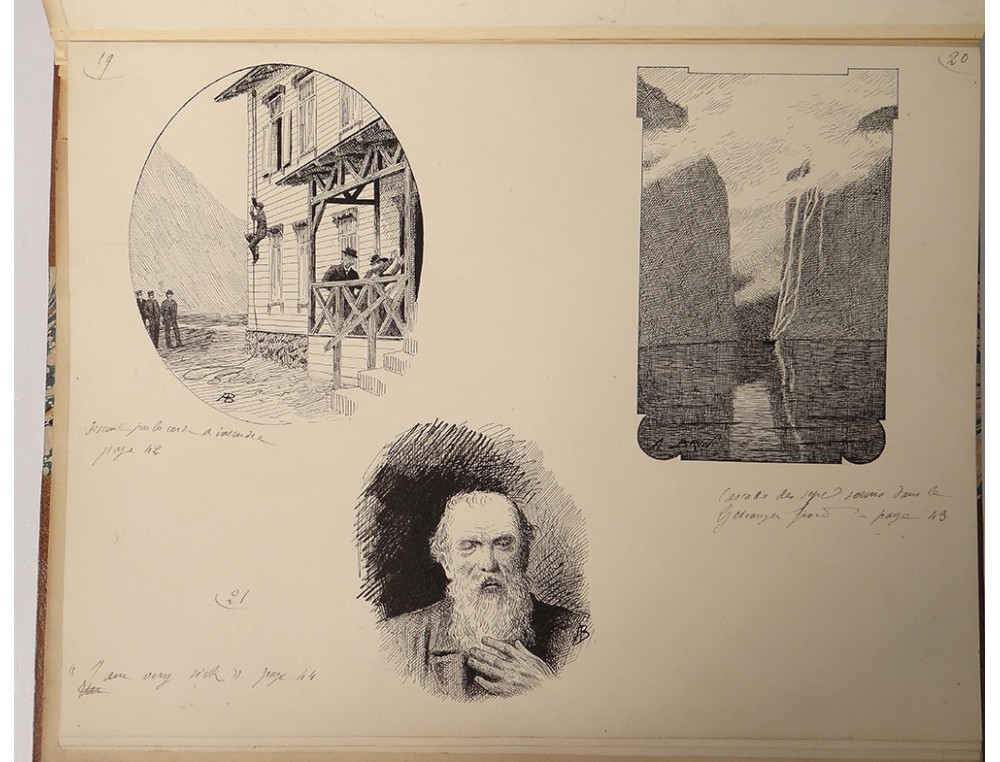 19
20
AB
Descente par la corde à incendie
page 42
A. BRUN
Cascade des sept soeurs dans le
Geiranger fiord – page 43
21
AB
"I am very sick" page 44